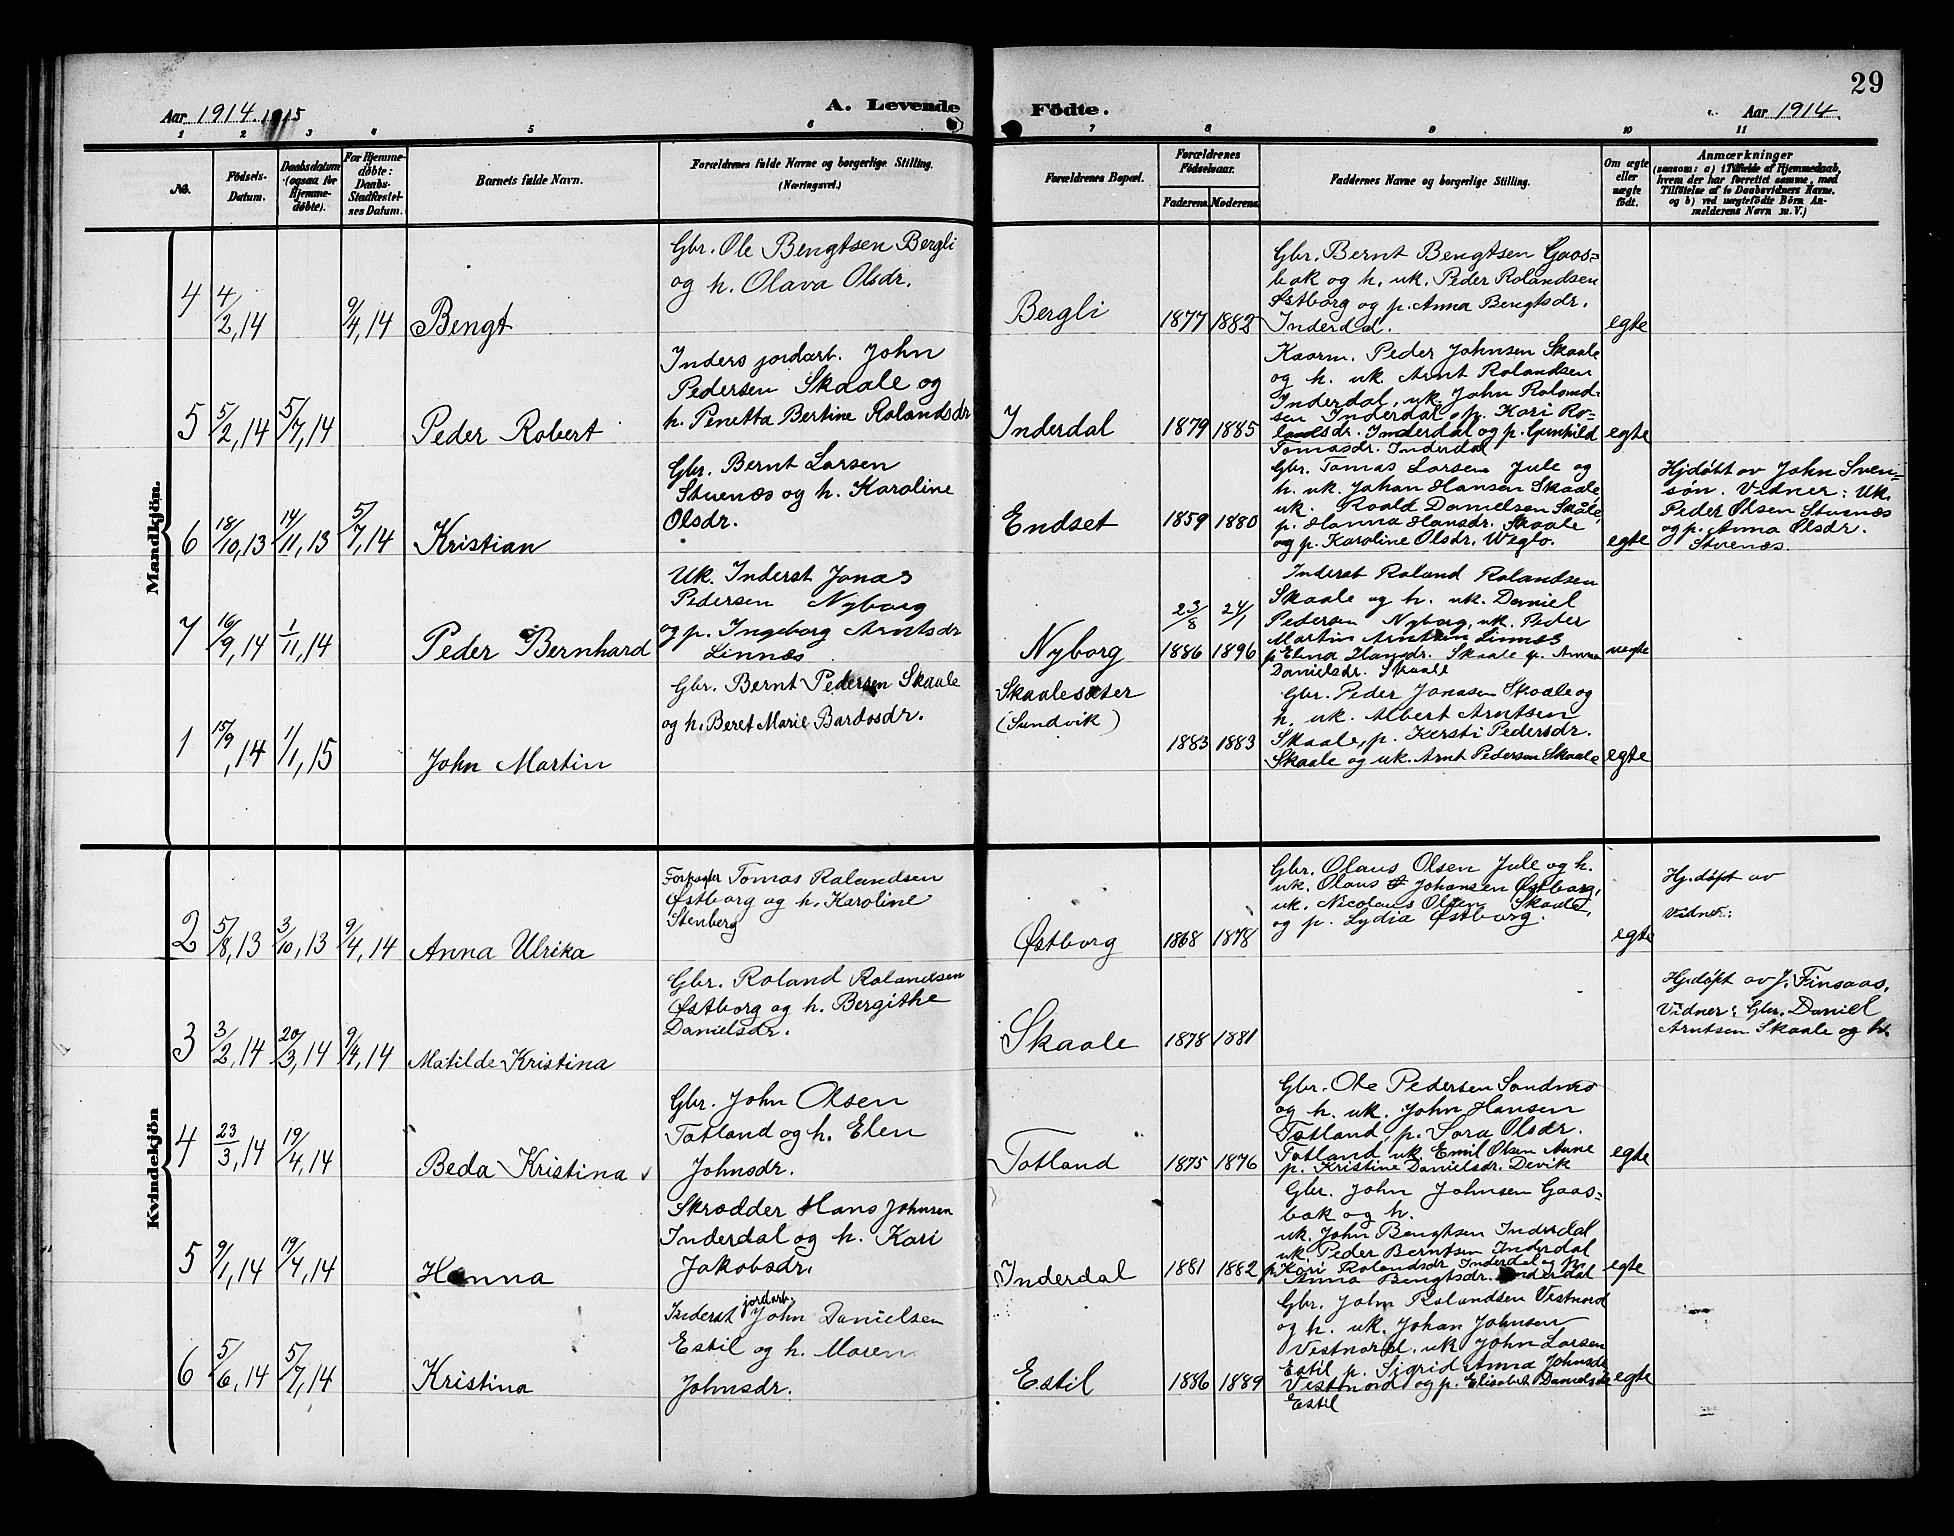 29
Aar 1914. 1915
A. Levende
Födte.
Aar 1914.
1 2 3 4 5 6 7 8 9 10 11
No.
Födsels-Datum.
Daabsdatum (ogsaa for Hjemme-döbte).
For Hjemme-döbte: Daabs-Stadfæstel-ses Datum.
Barnets fulde Navn.
Forældrenes fulde Navne og borgerlige Stilling.
(Næringsvei.)
Forældrenes Bopæl.
Forældrenes Födselsaar.
Faderens. Moderens.
Faddernes Navne og borgerlige Stilling.
Om ægte eller uægte födt.
Anmærkninger
(saasom: a) i Tilfælde af Hjemmedaab,
hvem der har forrettet samme, med
Tilföielse af to Daabsvidners Navne,
og b) ved uægtefödte Börn An-
melderens Navn m. V.)
Mandkjön.
4 4/2,14 9/4,14 Bengt
Gbr. Ole Bengtsen Bergli
og h. Olava Olsdr.
Bergli 1877 1882
Gbr. Bernt Bengtsen Gaas=
bak og h. uk. Peder Rolandsen
Østborg og p. Anna Bengtsdr.
Inderdal.
egte
5 5/2,14 5/7,14 Peder Robert
Inders jordarb. John
Pedersen Skaale og
h. Penetta Bertine Rolandsdr
Inderdal 1879 1885
Kaarm. Peder Johnsen Skaale
og h. uk. Arnt Rolandsen
Inderdal, uk. John Roland-
sen Inderdal, p. Kari Ro-
landsdr. Inderdal og p. Gunhild
Tomasdr. Inderdal
egte
6 18/10,13 14/11,13 5/7,14 Kristian
Gbr. Bernt Larsen
Stuenæs og h. Karoline
Olsdr.
Endset 1859 1880
Gbr. Tomas Larsen Jule og
h. uk. Johan Hansen Skaale,
uk. Roald Danielsen Skåle,
p. Hanna Hansdr. Skaale
og p. Karoline Olsdr.
egte
Hjdøbt av John Sven-
søn. Vidner: Uk.
Peder Olsen Stuenæs
og p. Anna Olsdr.
Stuenæs.
7 16/9,14 1/11,14 Peder Bernhard
Uk. Inderst Jonas
Pedersen Nyborg
og p. Ingeborg Arntsdr
Linnæs
Nyborg 23/8 1886 24/1 1896
Inderst Roland Rolandsen
Skaale og h. uk. Daniel
Pedersen Nyborg, uk. Peder
Martin Arntsen Linnæs
p. Elina Hansdr. Skaale p. Anna
Danielsdr. Skaale
uegte
1 15/9,14 1/1,15 John Martin
Gbr. Bernt Pedersen Skaale
og h. Beret Marie Bardosdr.
Skaalesæter
(Sundvik)
1883 1883
Gbr. Peder Jonasen Skaale og
h. uk. Albert Arntsen
Skaale, p. Kersti Pedersdr.
Skaale og uk. Arnt Pedersen Skaale
egte
Kvindekjön
2 5/8,13 3/10,13 9/4,14 Anna Ulrika
Forpagter Tomas Rolandsen
Østborg og h. Karoline
Stenberg
Østborg 1868 1878
Gbr. Olaus Olsen Jule og h.
uk. Olaus Johansen Østborg,
uk. Nicolaus Olsen Skaale,
og p. Lydia Østborg.
egte
Hj.døpt av
Vidner:
3 3/2,14 20/3,14 9/4,14 Matilde Kristina
Gbr. Roland Rolandsen
Østborg og h. Bergithe
Danielsdr.
Skaale 1878 1881
Hj.døpt av J. Finsaas,
Vidner: Gbr. Daniel
Arntsen Skaale og h.
4 23/3,14 19/4,14 Beda Kristina
Gbr. John Olsen
Totland og h. Elen
Johnsdr.
Totland 1875 1876
Gbr. Ole Pedersen Sandmo
og h. uk. John Hansen
Totland, p. Sara Olsdr.
Totland uk. Emil Olsen Aune
p. Kristine Danielsdr. Devik
egte
5 9/1,14 19/4,14 Hanna
Skrædder Hans Johnsen
Inderdal og h. Kari
Jakobsdr.
Inderdal 1881 1882
Gbr. John Johnsen Gaas=
bak og h.
uk. John Bengtsen Inderdal
uk. Peder Berntsen Inderdal
p. Kari Rolandsdr Inderdal og p.
Anna Bengtsdr. Inderdal
egte
6 5/6,14 5/7,14 Kristina
Inderst jordarb. John Danielsen
Estil og h. Maren
Johnsdr.
Estil 1886 1889
Gbr. John Rolandsen Vestnord
og h. uk. Johan Johnsen
Vestnord, uk John Larsen
Estil p. Sigrid Anna Johnsdr
Vestnord og p. Elisabet Danielsdr
Estil
egte